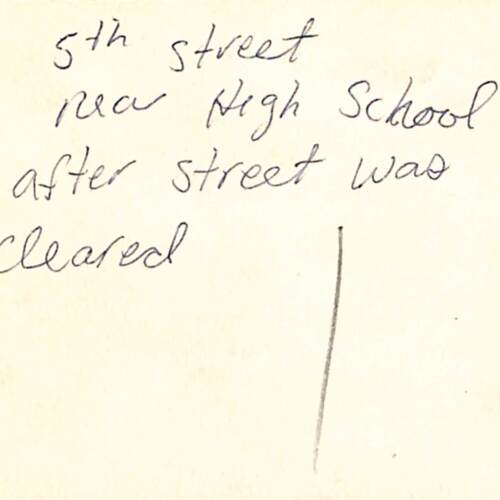 5th street
near High School
after street was
cleared